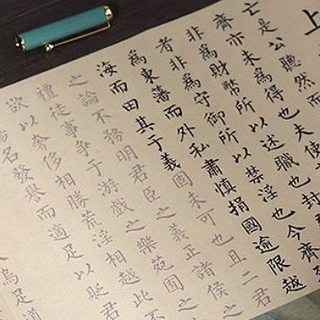 上
亡是公聽然而
齊亦未為得也夫使
非為財幣所以述職也封
者非為守御所以禁淫也今齊
為東藩而外私肅慎捐國逾限越
海而田其于義固未可也且二君
之論不務明君臣之義正諸侯之
禮徒事爭于游戲之樂苑囿之
欲以奢侈相勝荒淫相越此不
名發譽而適足以貶君